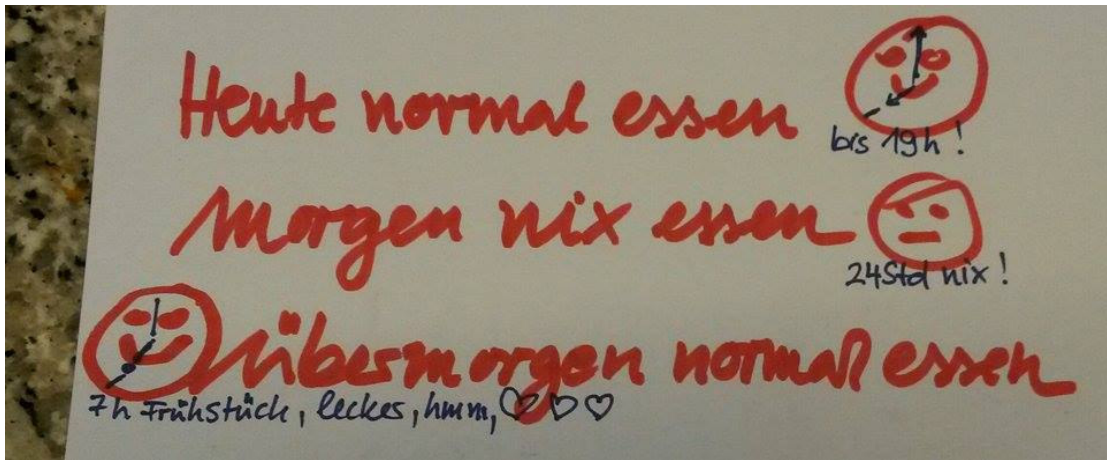 Heute normal essen
bis 19h!
Morgen nix essen
24Std nix!
Übermorgen normal essen
7h Frühstück, lecker, hmm, ♡♡♡